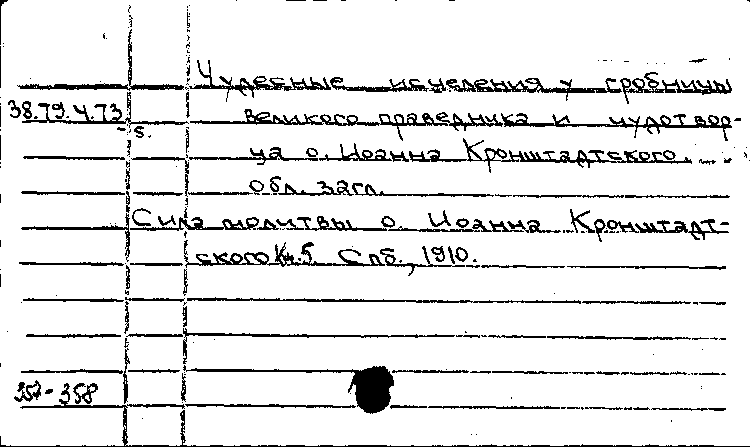 Чудесные исцеления у гробницы
38.79.4.73 великого праведника и чудотвор-
5.
ца о. Иоанна Кронштадтского. ...
Обл. загл.
Сила молитвы о. Иоанна Кронштадт-
ского Кн.5. Спб., 1910.
357-358